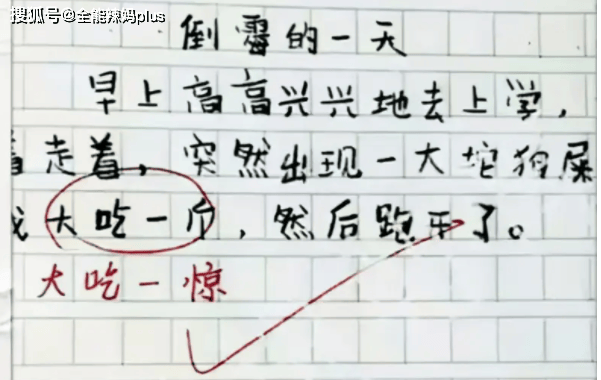 搜狐号@全能辣妈plus
倒霉的一天
早上高高兴兴地去上学,
着走着,突然出现一大坨狗屎
我大吃一斤,然后跑开了。
大吃一惊